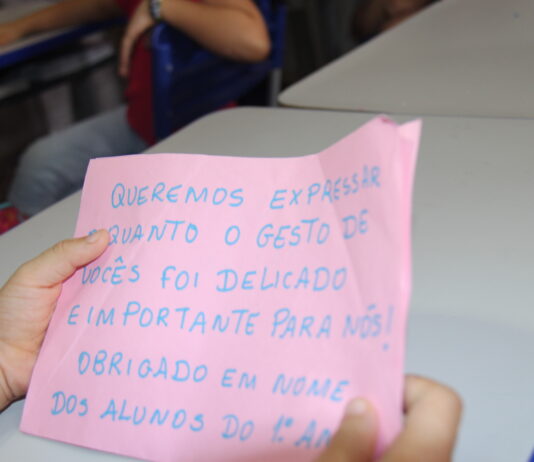 QUEREMOS EXPRESSAR
QUANTO O GESTO DE
VOCÊS FOI DELICADO
E IMPORTANTE PARA NÓS!
OBRIGADO EM NOME
DOS ALUNOS DO 1º